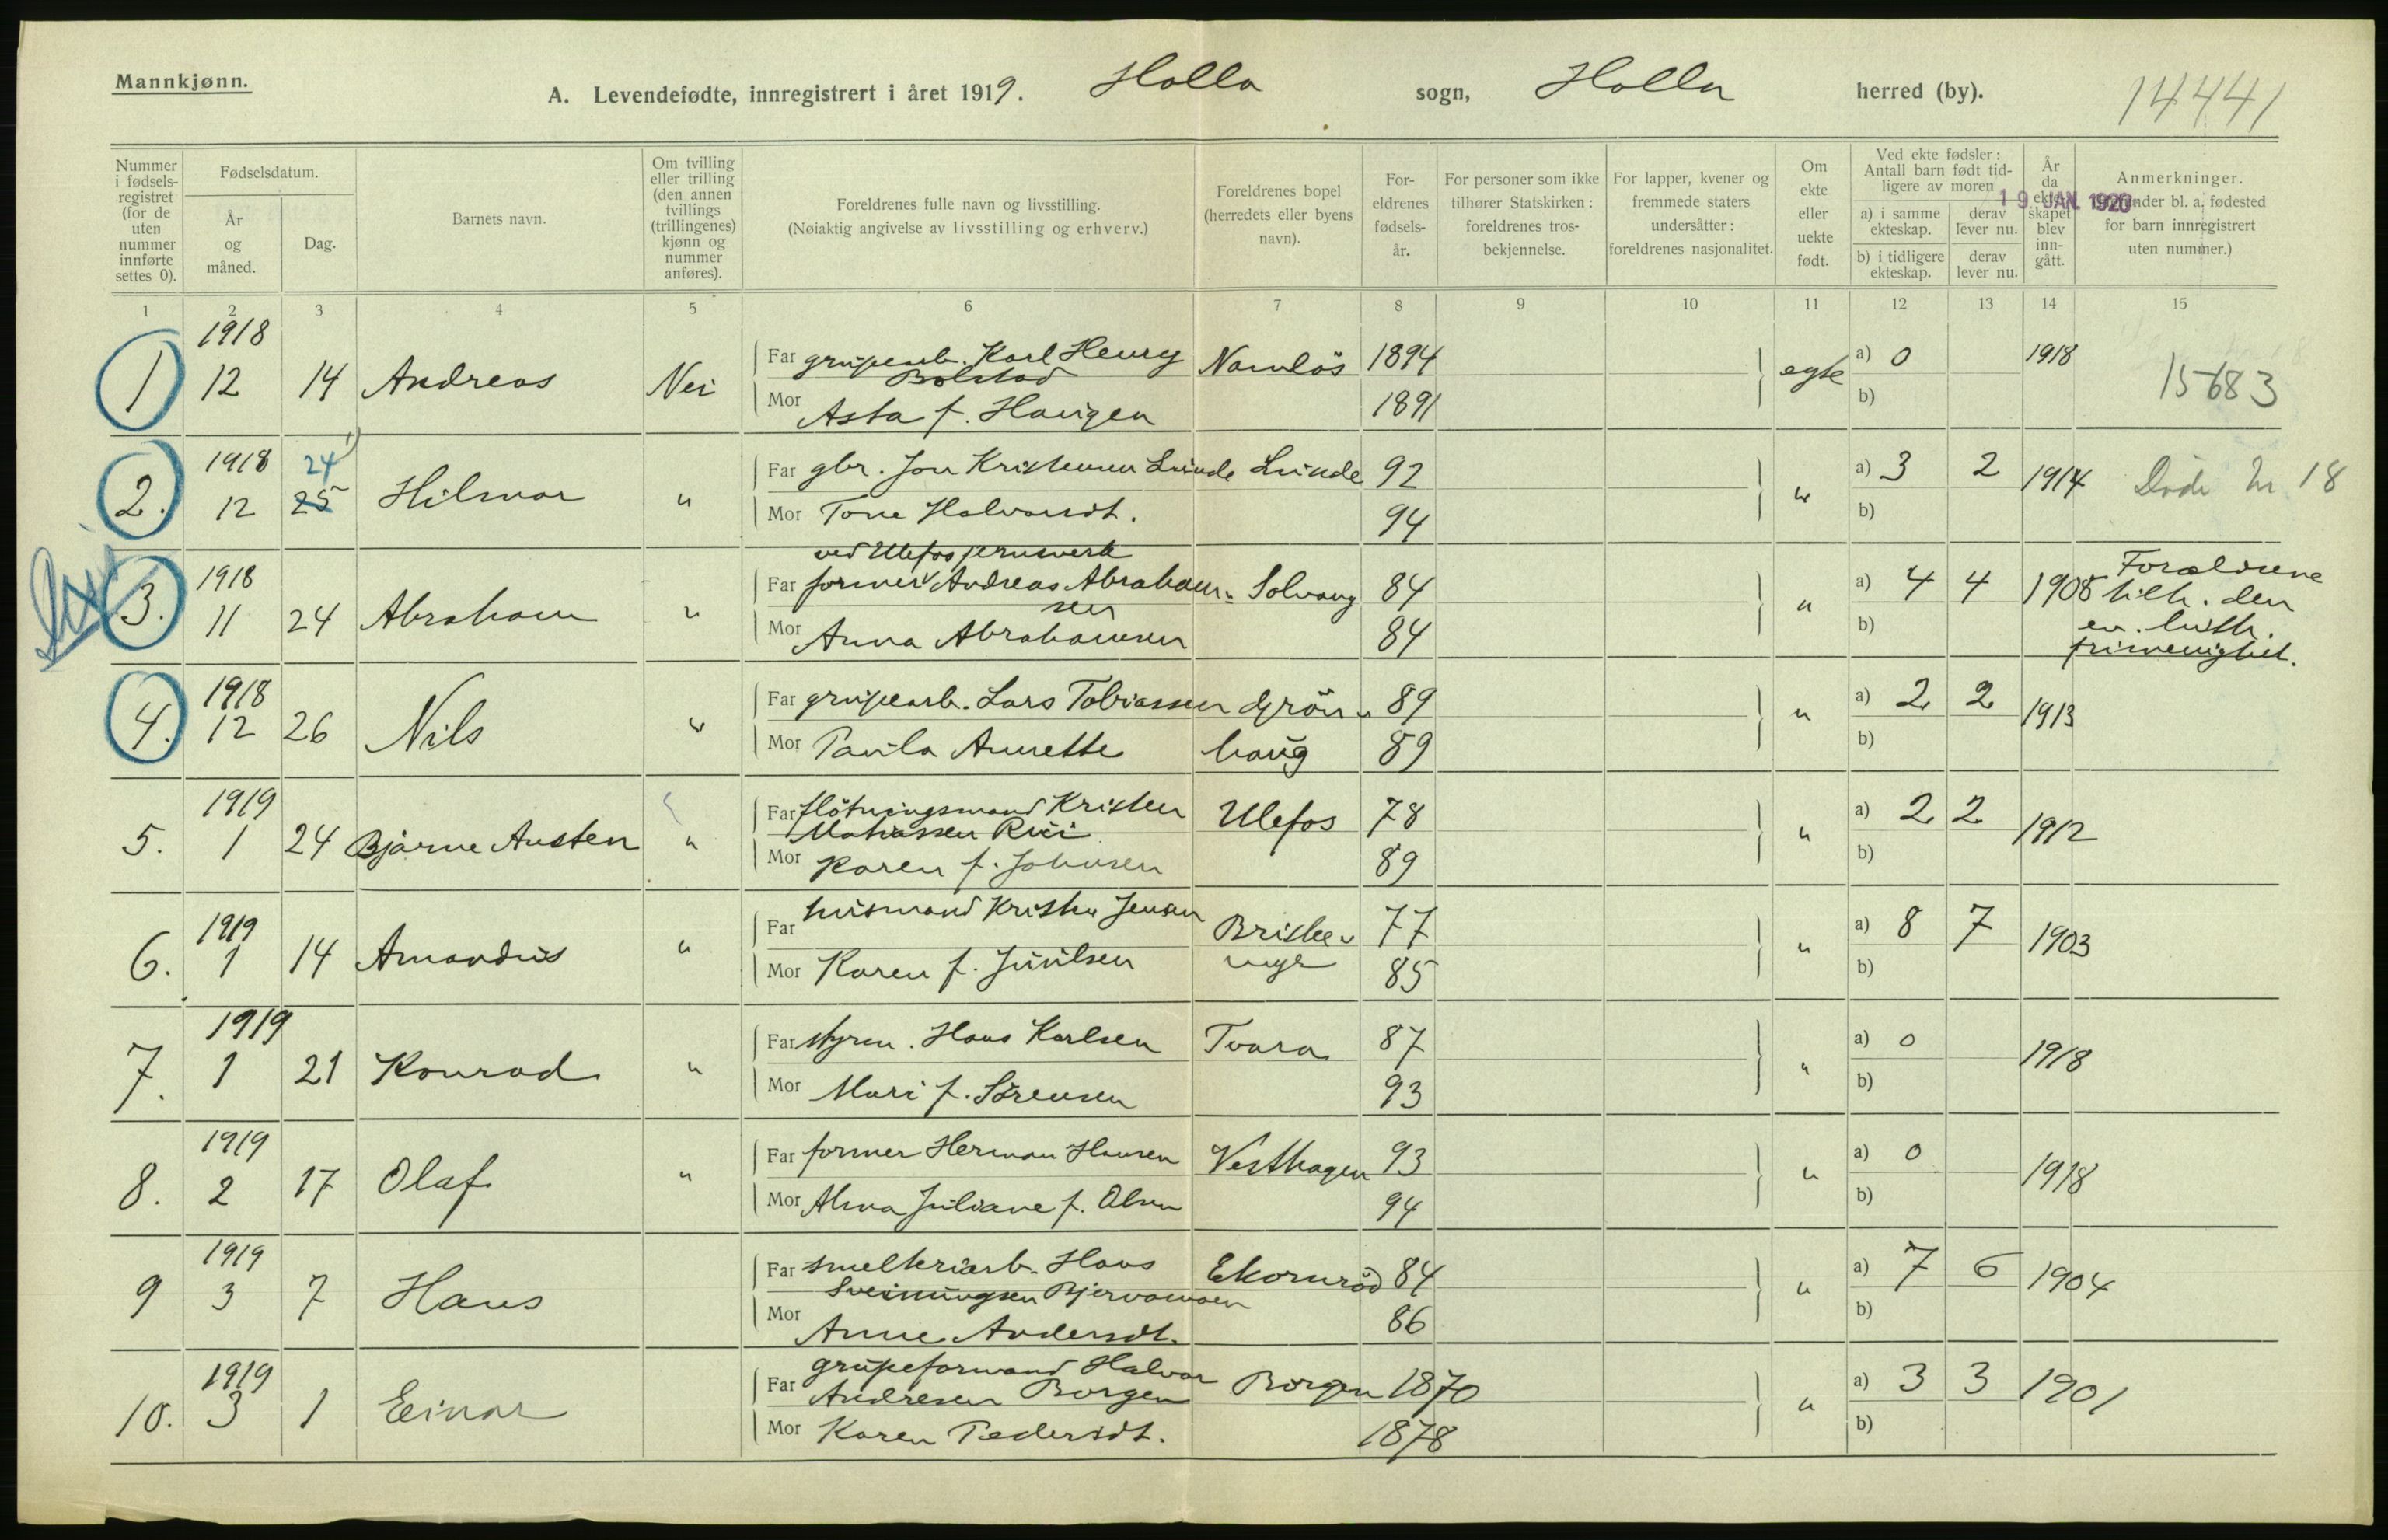 Mannkjønn.
A. Levendefødte, innregistrert i året 1919. Holla sogn, Holla herred (by). 14441
Nummer i fødsels-registret (for de uten nummer innførte settes 0).
Fødselsdatum.
År og måned.
Dag.
Barnets navn.
Om tvilling eller trilling (den annen tvillings (trillingenes) kjønn og nummer anføres).
Foreldrenes fulle navn og livsstilling.
(Nøiaktig angivelse av livsstilling og erhverv.)
Foreldrenes bopel (herredets eller byens navn).
For-eldrenes fødsels-år.
For personer som ikke tilhører Statskirken: foreldrenes tros-bekjennelse.
For lapper, kvener og fremmede staters undersåtter: foreldrenes nasjonalitet.
Om ekte eller uekte født.
Ved ekte fødsler: Antall barn født tid-ligere av moren
a) i samme ekteskap.
derav lever nu.
b) i tidligere ekteskap.
derav lever nu.
År da ekte-skapet blev inn-gått.
Anmerkninger.
(Herunder bl. a. fødested for barn innregistrert uten nummer.)
19. JAN. 1920
1 2 3 4 5 6 7 8 9 10 11 12 13 14 15
1918
1 12 14 Andreas Nei Far grupearb. Karl Henry Namløs 1894 egte a) 0 1918 15683
Bolstad
Mor Asta f. Haugen 1891 b)
1918 24
2. 12 25 Hilmar " Far gbr. Jon Kristensen Lunde Lunde 92 " a) 3 2 1914 Døde Nr 18
Mor Tone Halvorsdt. 94 b)
ved Ulefos jernverk
1918
3. 11 24 Abraham " Far former Andreas Abraham- Solvang 84 " a) 4 4 1908 Forældrene
sen tilh. den
Mor Anna Abrahamsen 84 b) ev. luth.
frimenighet.
1918
4. 12 26 Nils " Far grupearb. Lars Tobiassen Grön- 89 " a) 2 2 1913
Mor Paula Annette haug 89 b)
1919
5. 1 24 Bjarne Austen " Far flötningsmand Kristen Ulefos 78 " a) 2 2 1912
Mathiassen Rui
Mor Karen f. Johnsen 89 b)
1919
6. 1 14 Amandus " Far husmand Kristen Jensen 77 " a) 8 7 1903
Mor Karen f. Juulsen 85 b)
1919
7. 1 21 Konrad " Far styrm. Hans Karlsen Tvara 87 " a) 0 1918
Mor Mari f. Sörensen 93 b)
1919
8. 2 17 Olaf " Far former Herman Hansen Vesthagen 93 " a) 0 1918
Mor Alma Juliane f. Olsen 94 b)
1919
9 3 7 Hans Far smelteriarb. Hans Ekornröd 84 " a) 7 6 1904
Sveinungsen Bjervamoen
Mor Anne Andersdt. 86 b)
1919
10. 3 1 Einar Far grupeformand Halvor Borgen 1870 " a) 3 3 1901
Andresen Borgen
Mor Karen Pedersdt. 1878 b)